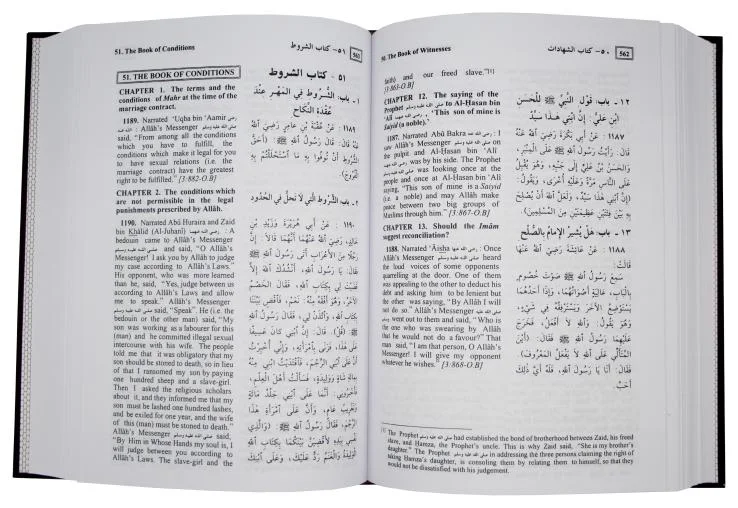 50. The Book of Witnesses
٥٠- كتاب الشهادات
562
faith) and our freed slave."[1]
[3:863-O.B]
CHAPTER 12. The saying of the
Prophet صلى الله عليه وسلم to Al-Ḥasan bin
'Alī رضي الله عنهما, "This son of mine is
Saiyid (a noble)."
1187. Narrated Abū Bakra رضي الله عنه: I
saw Allāh's Messenger صلى الله عليه وسلم on
the pulpit and Al-Ḥasan bin 'Alī
رضي الله عنهما was by his side. The Prophet
صلى الله عليه وسلم was looking once at the
people and once at Al-Ḥasan bin 'Alī
saying, "This son of mine is a Saiyid
(i.e. a noble) and may Allāh make
peace between two big groups of
Muslims through him." [3:867-O.B]
CHAPTER 13. Should the Imām
suggest reconciliation?
1188. Narrated 'Āisha رضي الله عنها: Once
Allāh's Messenger صلى الله عليه وسلم heard
the loud voices of some opponents
quarrelling at the door. One of them
was appealing to the other to deduct his
debt and asking him to be lenient but
the other was saying, "By Allāh I will
not do so." Allāh's Messenger صلى الله عليه وسلم
went out to them and said, "Who is
the one who was swearing by Allāh
that he would not do a favour?" That
man said, "I am that person, O Allāh's
Messenger! I will give my opponent
whatever he wishes." [3:868-O.B]
١٢- باب: قَوْلِ النَّبِيِّ ﷺ لِلْحَسَنِ
ابْنِ عَلِيٍّ: إِنَّ ابْنِي هٰذَا سَيِّدٌ
١١٨٧ : عَنْ أَبِي بَكْرَةَ رَضِيَ اللهُ عَنْهُ
قَالَ: رَأَيْتُ رَسُولَ اللهِ ﷺ عَلَى الْمِنْبَرِ،
وَالْحَسَنُ بْنُ عَلِيٍّ إِلَى جَنْبِهِ، وَهُوَ يُقْبِلُ
عَلَى النَّاسِ مَرَّةً وَعَلَيْهِ أُخْرَى، وَيَقُولُ:
(إِنَّ ابْنِي هٰذَا سَيِّدٌ، وَلَعَلَّ اللهَ أَنْ يُصْلِحَ
بِهِ بَيْنَ فِئَتَيْنِ عَظِيمَتَيْنِ مِنَ الْمُسْلِمِينَ).
١٣- باب: هَلْ يُشِيرُ الإِمَامُ بِالصُّلْحِ
١١٨٨ : عَنْ عَائِشَةَ رَضِيَ اللهُ عَنْهَا
قَالَتْ:
سَمِعَ رَسُولُ اللهِ ﷺ صَوْتَ خُصُومٍ
بِالْبَابِ، عَالِيَةٍ أَصْوَاتُهُمَا، وَإِذَا أَحَدُهُمَا
يَسْتَوْضِعُ الآخَرَ وَيَسْتَرْفِقُهُ فِي شَيْءٍ،
وَهُوَ يَقُولُ: وَاللهِ لَا أَفْعَلُ، فَخَرَجَ
عَلَيْهِمَا رَسُولُ اللهِ ﷺ فَقَالَ: (أَيْنَ
الْمُتَأَلِّي عَلَى اللهِ لَا يَفْعَلُ الْمَعْرُوفَ).
فَقَالَ: أَنَا يَا رَسُولَ اللهِ، فَلَهُ أَيُّ ذٰلِكَ
أَحَبَّ.
[1] The Prophet صلى الله عليه وسلم had established the bond of brotherhood between Zaid, his freed
slave, and Ḥamza, the Prophet's uncle. This is why Zaid said, "She is my brother's
daughter." The Prophet صلى الله عليه وسلم in addressing the three persons claiming the right of
taking Ḥamza's daughter, is consoling them by relating them to himself, so that they
would not be dissatisfied with his judgement.
51. The Book of Conditions
٥١- كتاب الشروط
51. THE BOOK OF CONDITIONS
CHAPTER 1. The terms and the
conditions of Mahr at the time of the
marriage contract.
1189. Narrated 'Uqba bin 'Aamir رضي
الله عنه: Allāh's Messenger صلى الله عليه وسلم
said, "From among all the conditions
which you have to fulfill, the
conditions which make it legal for you
to have sexual relations (i.e. the
marriage contract) have the greatest
right to be fulfilled." [3:882-O.B]
CHAPTER 2. The conditions which
are not permissible in the legal
punishments prescribed by Allāh.
1190. Narrated Abū Huraira and Zaid
bin Khālid (Al-Juhanī) رضي الله عنهما: A
bedouin came to Allāh's Messenger
صلى الله عليه وسلم and said, "O Allāh's
Messenger! I ask you by Allāh to judge
my case according to Allāh's Laws."
His opponent, who was more learned
than he, said, "Yes, judge between us
according to Allāh's Laws and allow
me to speak." Allāh's Messenger
صلى الله عليه وسلم said, "Speak." He (i.e. the
bedouin or the other man) said, "My
son was working as a labourer for this
(man) and he committed illegal sexual
intercourse with his wife. The people
told me that it was obligatory that my
son should be stoned to death, so in lieu
of that I ransomed my son by paying
one hundred sheep and a slave-girl.
Then I asked the religious scholars
about it, and they informed me that my
son must be lashed one hundred lashes,
and be exiled for one year, and the wife
of this (man) must be stoned to death."
Allāh's Messenger صلى الله عليه وسلم said,
"By Him in Whose Hands my soul is, I
will judge between you according to
Allāh's Laws. The slave-girl and the
٥١ - كتاب الشروط
١ - باب: الشُّرُوطِ فِي الْمَهْرِ عِنْدَ
عُقْدَةِ النِّكَاحِ
١١٨٩ : عَنْ عُقْبَةَ بْنِ عَامِرٍ رَضِيَ اللهُ
عَنْهُ قَالَ: قَالَ رَسُولُ اللهِ ﷺ: (أَحَقُّ
الشُّرُوطِ أَنْ تُوفُوا بِهِ مَا اسْتَحْلَلْتُمْ بِهِ
الْفُرُوجَ).
٢ - باب: الشُّرُوطِ الَّتِي لَا تَحِلُّ فِي الْحُدُودِ
١١٩٠ : عَنْ أَبِي هُرَيْرَةَ وَزَيْدِ بْنِ
خَالِدٍ رَضِيَ اللهُ عَنْهُمَا أَنَّهُمَا قَالَا: إِنَّ
رَجُلًا مِنَ الأَعْرَابِ أَتَى رَسُولَ اللهِ ﷺ
فَقَالَ: يَا رَسُولَ اللهِ، أَنْشُدُكَ اللهَ إِلَّا
قَضَيْتَ لِي بِكِتَابِ اللهِ، فَقَالَ الْخَصْمُ
الآخَرُ، وَهُوَ أَفْقَهُ مِنْهُ: نَعَمْ، فَاقْضِ بَيْنَنَا
بِكِتَابِ اللهِ، وَائْذَنْ لِي، فَقَالَ رَسُولُ اللهِ
ﷺ: (قُلْ). قَالَ: إِنَّ ابْنِي كَانَ عَسِيفًا
عَلَى هٰذَا، فَزَنَى بِامْرَأَتِهِ، وَإِنِّي أُخْبِرْتُ
أَنَّ عَلَى ابْنِي الرَّجْمَ، فَافْتَدَيْتُ ابْنِي مِنْهُ
بِمِائَةِ شَاةٍ وَوَلِيدَةٍ، فَسَأَلْتُ أَهْلَ الْعِلْمِ،
فَأَخْبَرُونِي: أَنَّمَا عَلَى ابْنِي جَلْدُ مِائَةٍ
وَتَغْرِيبُ عَامٍ، وَأَنَّ عَلَى امْرَأَةِ هٰذَا
الرَّجْمَ، فَقَالَ رَسُولُ اللهِ ﷺ: (وَالَّذِي
نَفْسِي بِيَدِهِ لَأَقْضِيَنَّ بَيْنَكُمَا بِكِتَابِ اللهِ،
الْوَلِيدَةُ وَالْغَنَمُ رَدٌّ عَلَيْكَ، وَعَلَى ابْنِكَ